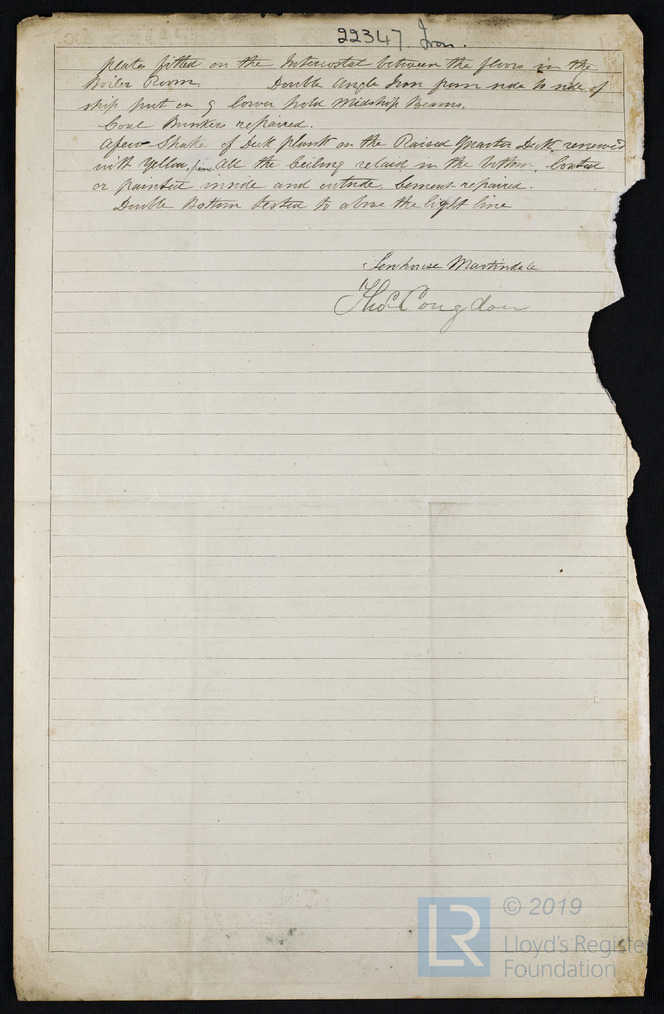 22347. Iron.
plates fitted on the Intercostal between the floors in the
Boiler Room. Double Angle Iron from side to side of
ship put on 9 lower hold Midship Beams.
Coal Bunkers repaired.
A few Shake of Deck plank on the Raised Quarter Deck renewed
with Yellow pine All the Ceiling relaid in the bottom. Coated
or painted inside and outside. Cement repaired.
Double Bottom tested to above the light line
Senhouse Martindale
Thos Congdon
LR © 2019
Lloyd's Register
Foundation